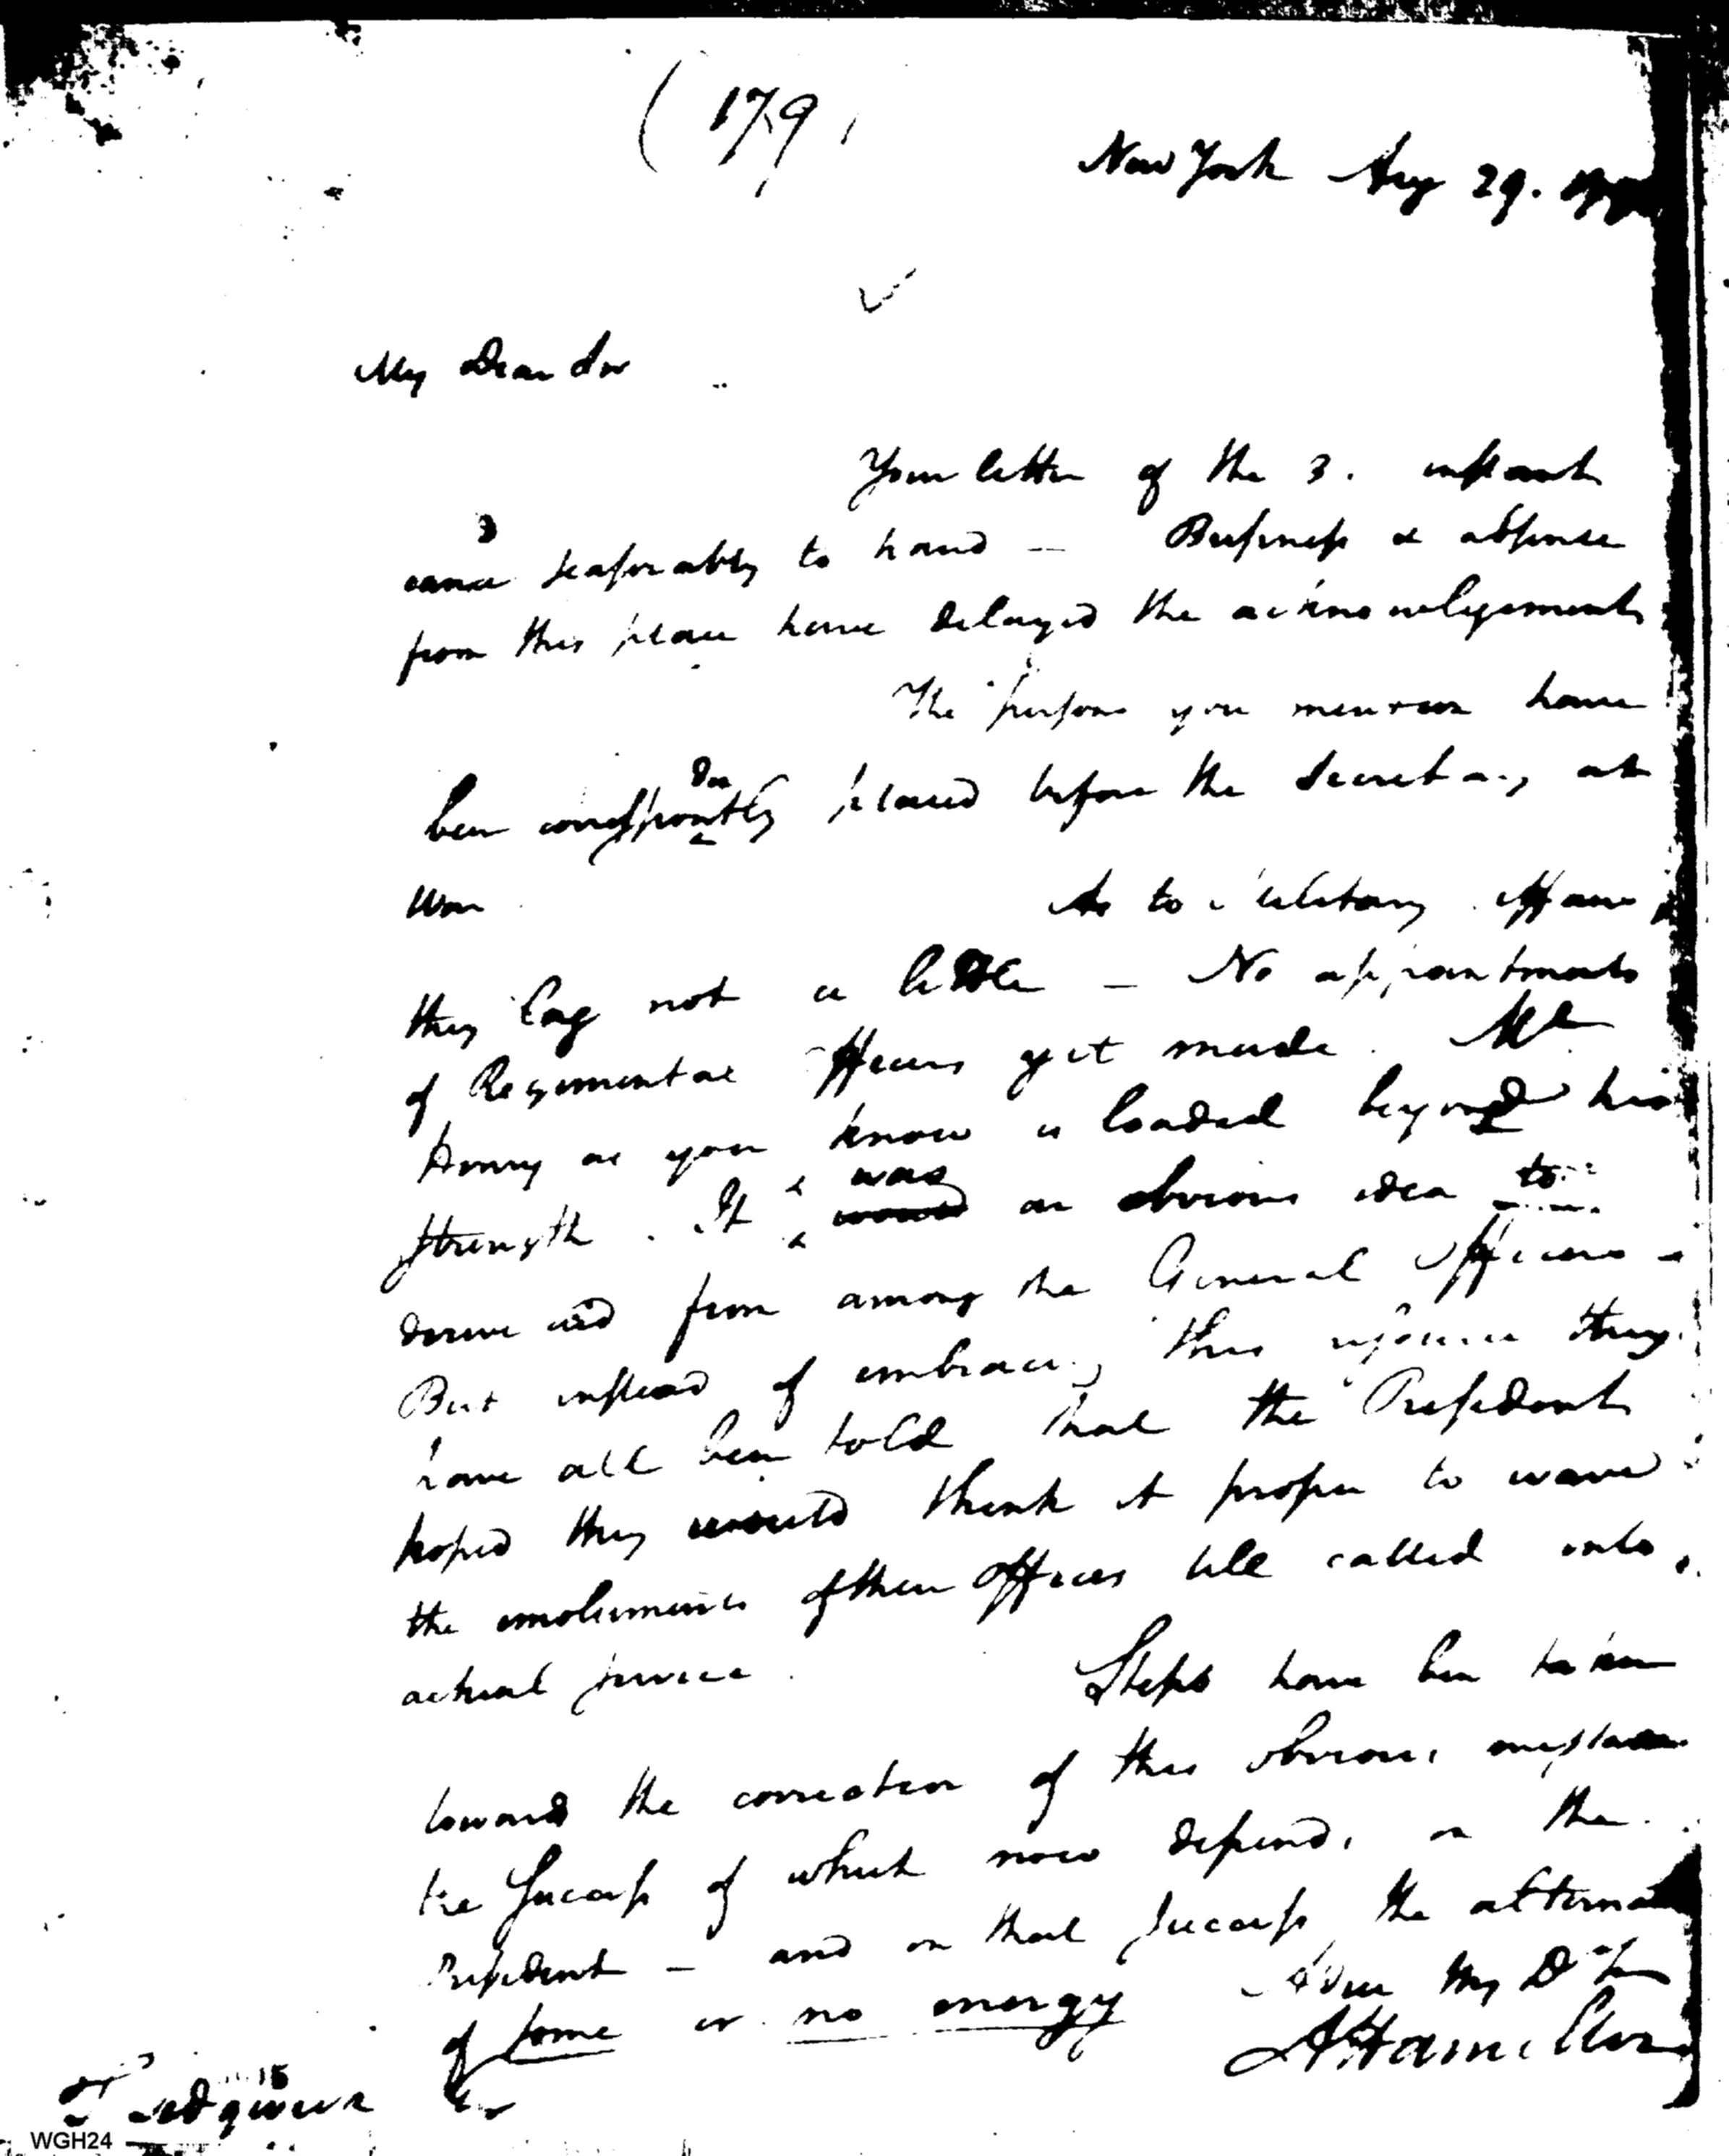 ( 179
New York Aug 29.
My Dear Sir
Your letter of the 3. instant
came seasonably to hand — Business & absence
from this place have delayed the acknowlegement
The persons you mention have
been correspondently placed before the Secretary at
War As to Military Affairs
they lag not a little — No appointments
of Regimental Officers yet made. Mc
Henry as you know is loaded beyond his
strength. It was would an obvious idea to
derive aid from among the General Officers —
But instead of embracing this resource they
have all been told that the President
hoped they would think it proper to wave
the emoluments of their offices till called into
actual service. Steps have been taken
toward the correction of this obvious mistake
the success of which now depends on the
President — and on that success the alterna
of some or no energy Adieu My D Sir
A Hamilton
T Sedgwick Esr
15
WGH24